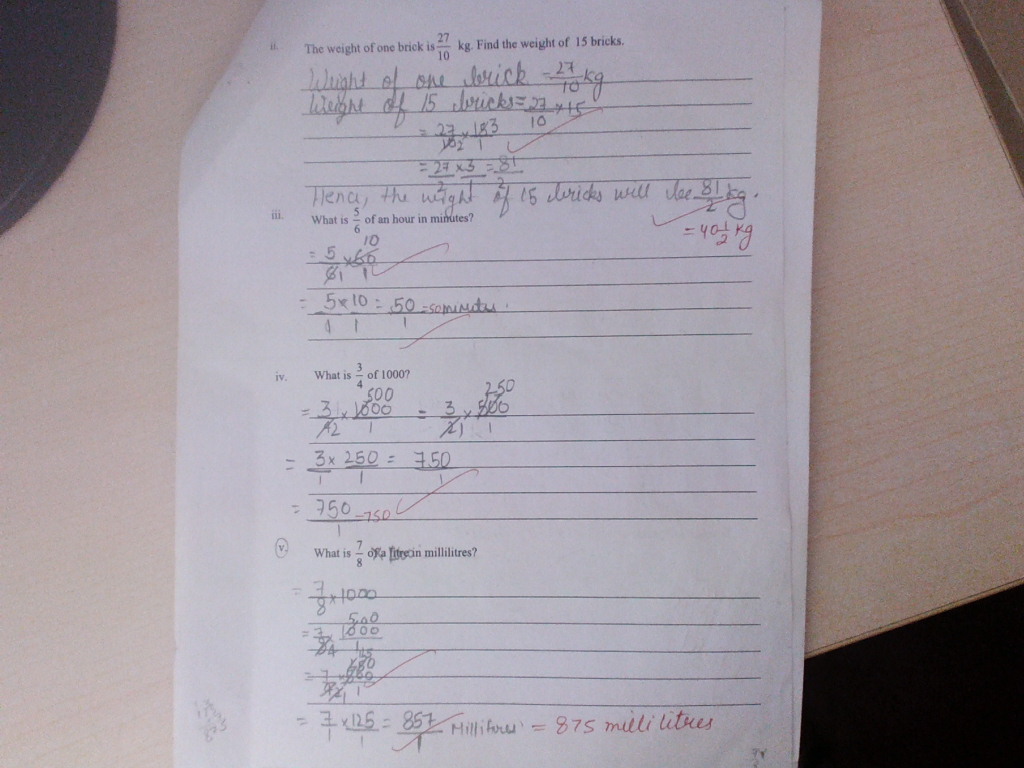 ii. The weight of one brick is 27/10 kg. Find the weight of 15 bricks.
Weight of one brick = 27/10 kg
Weight of 15 bricks = 27/10 × 15
= 27/10 2 × 15 3/1
= 27/2 × 3/1 = 81/2
Hence, the weight of 15 bricks will be 81/2 kg.
= 40 1/2 kg
iii. What is 5/6 of an hour in minutes?
= 5/6 1 × 60 10/1
= 5/1 × 10/1 = 50/1 = 50 minutes.
iv. What is 3/4 of 1000?
= 3/4 2 × 1000 500/1 = 3/2 1 × 500 250/1
= 3/1 × 250/1 = 750/1
= 750/1 = 750
v. What is 7/8 of a litre in millilitres?
= 7/8 × 1000
= 7/8 4 × 1000 500/1
= 7/
= 7/1 × 125/1 = 857/1 = 875 millilitres